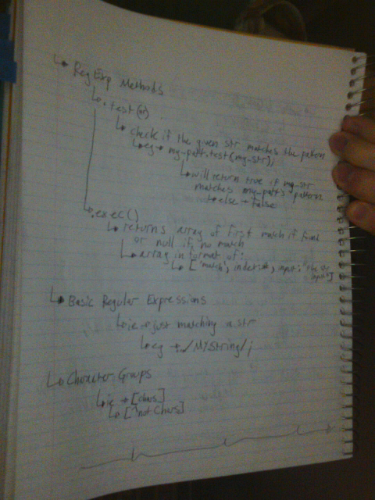 RegExp Methods
.test(str)
check if the given str matches the pattern
eg → my_patt.test(my_str);
will return true if my_str
matches my_patt's pattern
else → false
.exec()
returns array of first match if found
or null if no match
array in format of:
['match', index:#, input:
Basic Regular Expressions
ie → just matching a str
eg → /MyString/;
Character Groups
ie → [chars]
[^not chars]